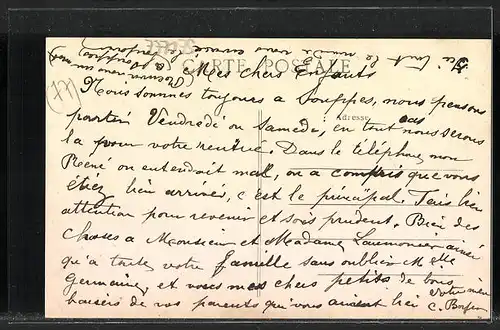 CARTE POSTALE
Adresse
(77)
Mes chers Enfants
Nous sommes toujours a Souppes, nous pensons
partir Vendredi ou Samedi, en tout cas nous serons
la pour votre rentrée. Dans le téléphone mon
René on entendait mal, on a compris que vous
étiez bien arrivés, c'est le principal. Fais bien
attention pour revenir et sois prudent. Bien des
choses a Monsieur et Madame Laumonier ainsi
qu'a toute votre famille sans oublier Melle
Germaine, et vous mes chers petits de bons
baisers de vos parents qui vous aiment bien
Votre mère
C.